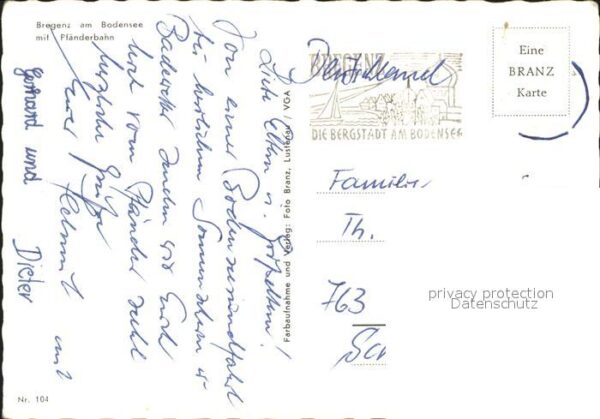 Bregenz am Bodensee
mit Pfänderbahn
Liebe Eltern u.
Von einer Bodenseerundfahrt
bei herrlichem Sonnenschein u.
Badewetter senden wir Euch
hoch vom Pfänder
herzliche Grüße
Euer Helmut und
Gerhard und
Dieter
Nr. 104
Farbaufnahme und Verlag: Foto Branz, Lustenau / VGA
BREGENZ
DIE BERGSTADT AM BODENSEE
Deutschland
Eine
BRANZ
Karte
Familie
Th.
763
Sch
privacy protection
Datenschutz